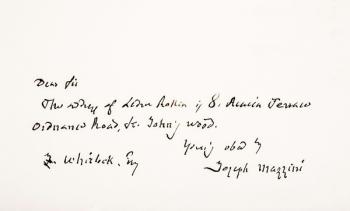 Dear Sir
The address of Ledru Rollin is 8. Terrace
Ordnance Road, St. John's Wood.
Yours
Esq
Joseph Mazzini